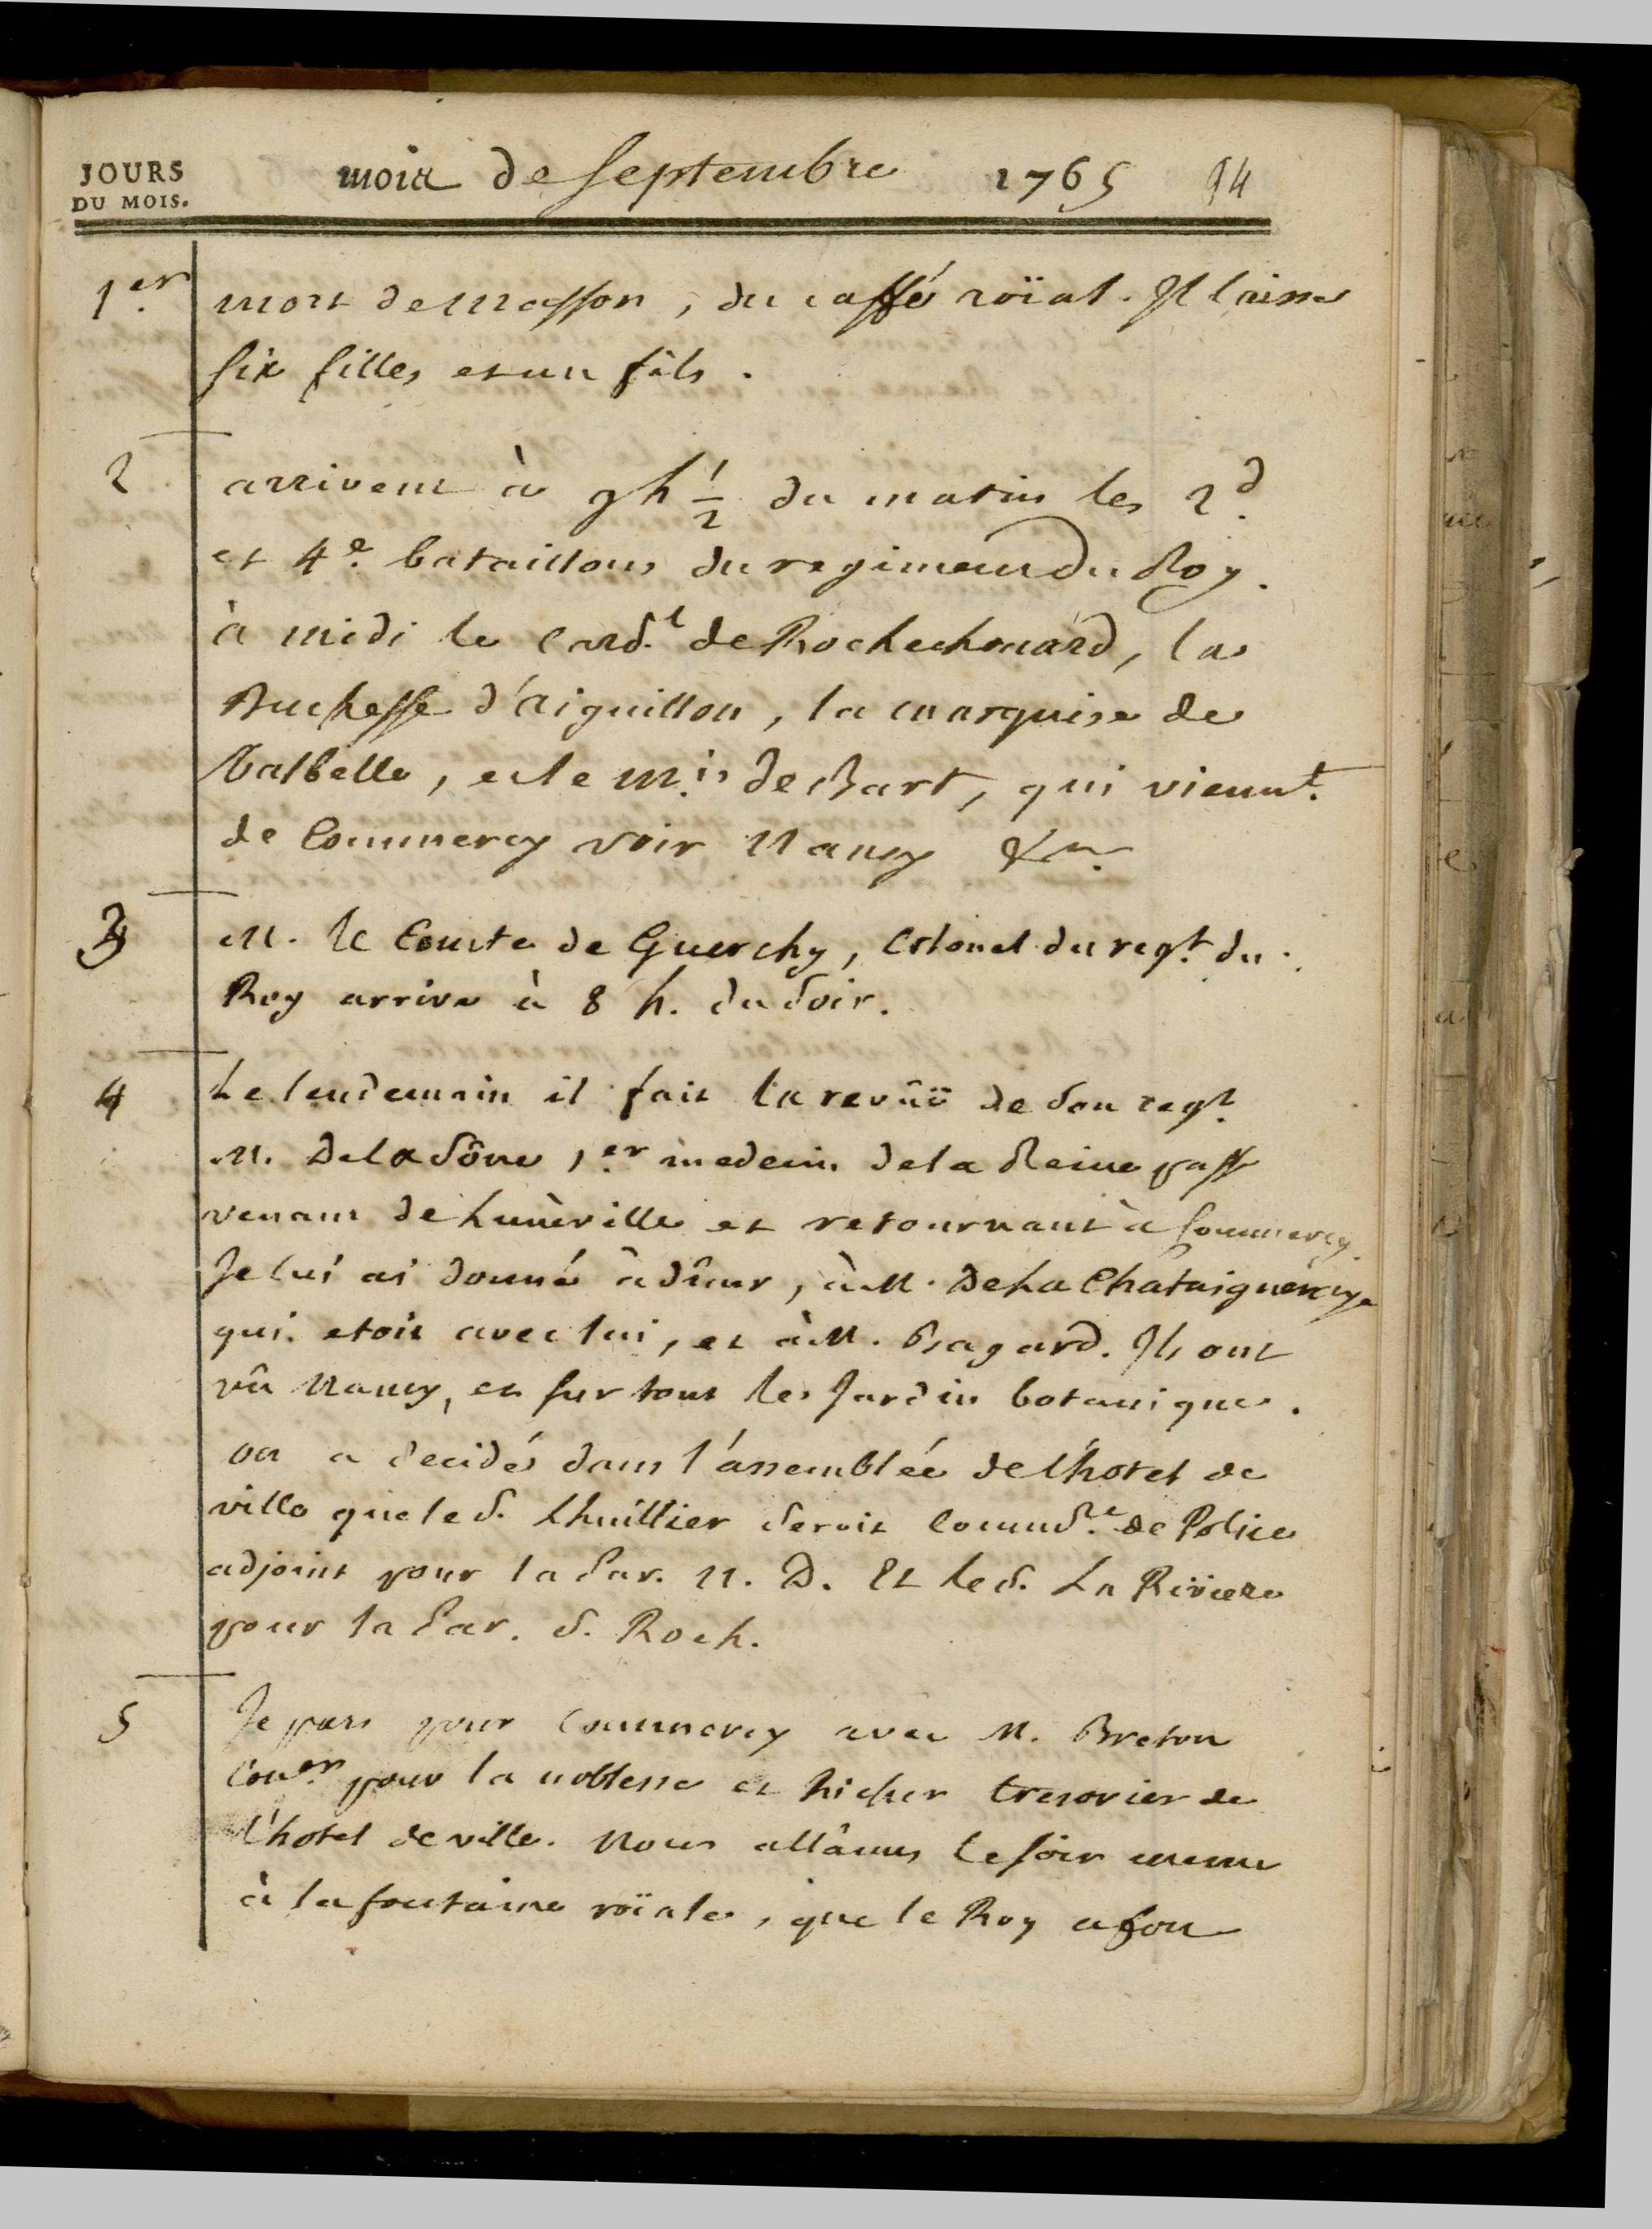 JOURS
DU MOIS.
mois de Septembre 1765 94
1er. mort de Masson, du caffé roïal. Il laisse
six filles et un fils.
2 arrivent à 9 h 1/2 du matin les 2d.
et 4e. bataillons du regiment du Roy.
à midi le Card.l de Rochechouard, la
Duchesse d'Aiguillon, la marquise de
Valbelle, et le M.is de Bart, qui vienn.t
de Commercy voir Nancy &a.
3 M. le Comte de Guerchy, Colonel du regt. du
Roy arrive à 8 h. du soir.
4 Le lendemain il fait la revûë de son regt.
M. De la Sône 1.er medecin de la Reine passe
venant de Lunèville et retournant à Commercy.
Je lui ai donné à dîner, à M. De La Chataigneraye
qui etoit avec lui, et à M. Bagard. Ils ont
vû Nancy, et sur tout le Jardin botanique.
on a decidé dans l'assemblée de l'hotel de
ville que le S. Lhuillier seroit Commss.re de Police
adjoint pour la Par. N. D. Et le S. La Riviere
pour la Par. S. Roch.
5 Je pars pour Commercy avec M. Breton
Coner pour la noblesse et Richer tresorier de
l'hotel de ville. Nous allâmes le soir meme
à la fontaine roïale, que le Roy a fon